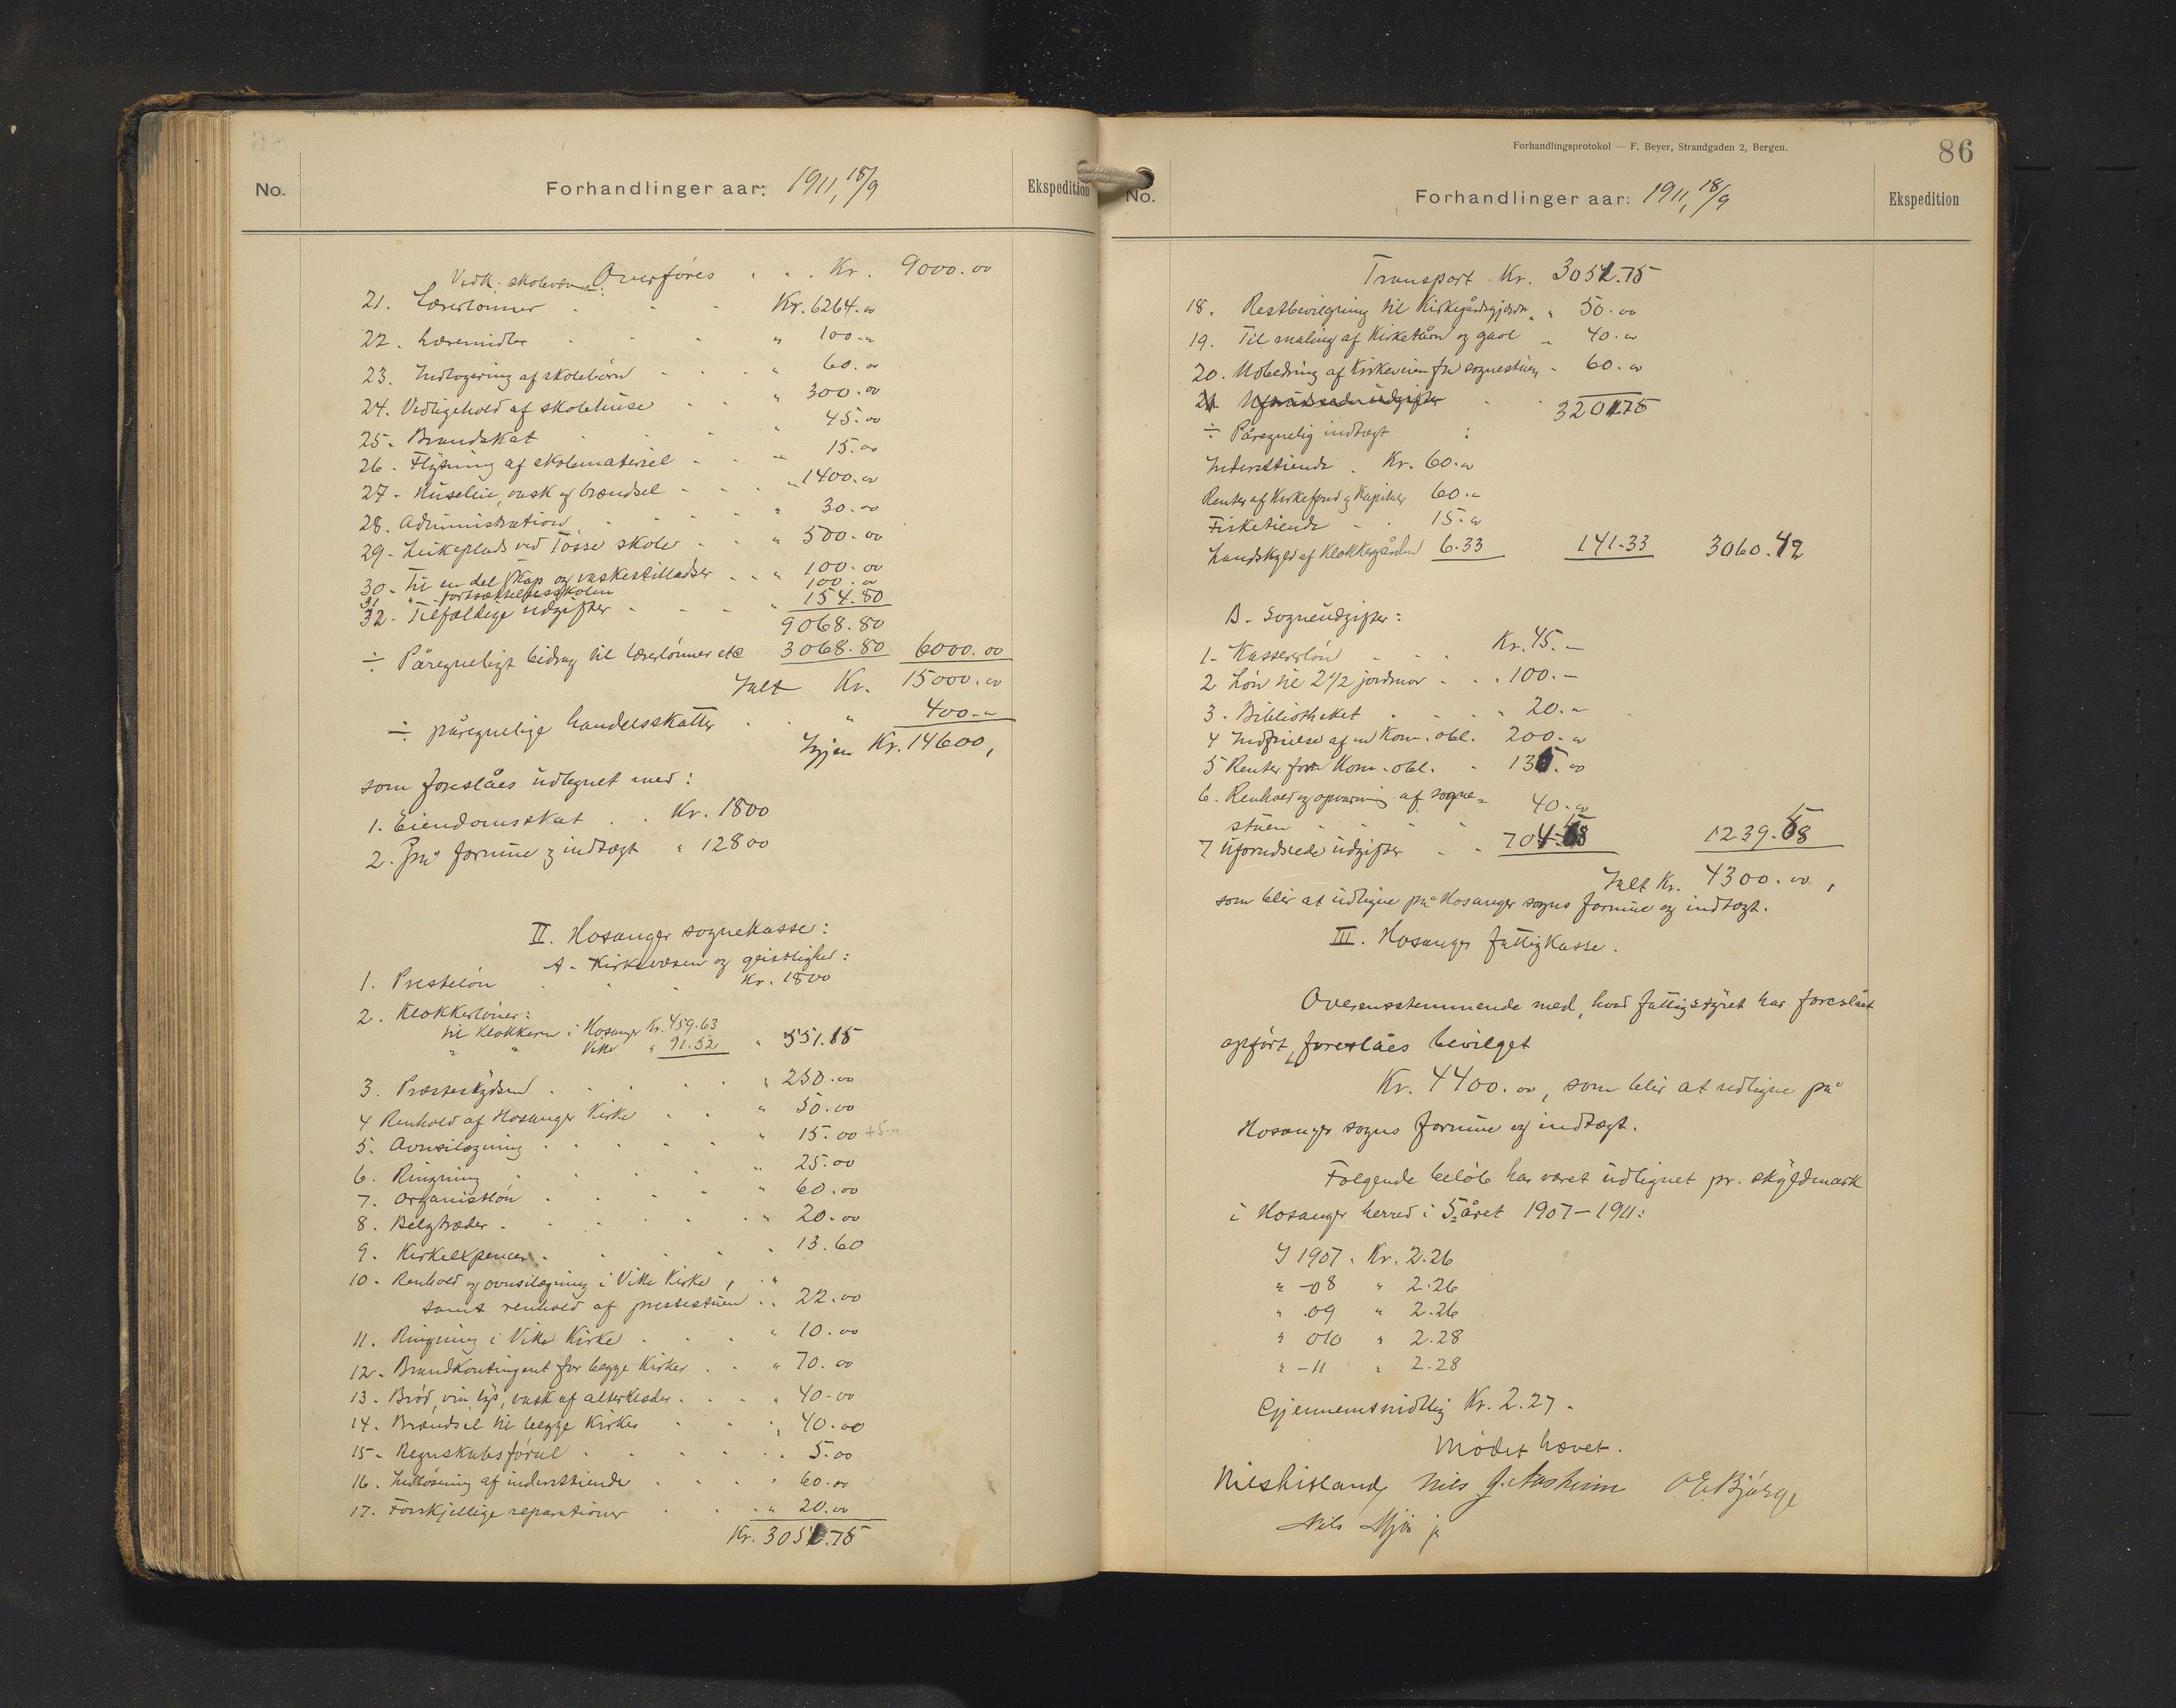 No. Forhandlinger aar: 1911, 18/9 Ekspedition
Overføres . . . Kr. 9000.00
Vedk. skolevæsen:
21. Lærerlønner . . . Kr. 6264.00
22. Læremidler . . . " 100.00
23. Indlogering af skolebørn . . . " 60.00
24. Vedligehold af skolehuse . . " 300.00
25. Brandskat . . . " 45.00
26. Flytning af skolemateriel . . . " 15.00
27. Husleie, vask og brændsel . . . " 1400.00
28. Administration . . . " 30.00
29. Leikeplads ved Tösse skole . . " 500.00
30. Til en del skap og vaskestilladser . . " 100.00
31 " fortsættelsesskolen 100.00
32. Tilfældige udgifter . . . " 154.80
9068.80
÷ Påregneligt bidrag til lærerlønner etc 3068.80 6000.00
Ialt Kr. 15000.00
÷ påregnelige handelsskatter . . " 400.00
Igjen Kr. 14600,
som foreslåes udlignet med:
1. Eiendomsskat . . Kr. 1800
2. På formue og indtægt " 12800
II. Hosanger sognekasse:
A. Kirkevæsen og geistlighed:
1. Presteløn . . . Kr. 1800
2. Klokkerlöner:
til klokkeren i Hosanger Kr. 459.63
" " Vike " 91.52 " 551.15
3. Præsteskydsen . . . " 250.00
4 Renhold af Hosanger Kirke . . " 50.00
5. Ovnsilægning . . . " 15.00 +5.00
6. Ringning . . . " 25.00
7. Organistløn . . . " 60.00
8. Belgtræder . . . " 20.00
9. Kirkeexpencer . . . " 13.60
10. Renhold og ovnsilægning i Vike Kirke, . "
samt renhold af prestestuen . . 22.00
11. Ringning i Vike Kirke . . . " 10.00
12. Brandkontingent for begge Kirker . . " 70.00
13. Brød, vin, lys, vask af alterklæder . . . " 40.00
14. Brændsel til begge Kirker . . . 40.00
15. Regnskabsførsel . . . 5.00
16. Indløsning af indersttiende . . . " 60.00
17. Forskjellige reparationer . . . " 20.00
Kr. 3051.75
Forhandlingsprotokol — F. Beyer, Strandgaden 2, Bergen.
86
No. Forhandlinger aar: 1911, 18/9 Ekspedition
Transport Kr. 3051.75
18. Restbevilgning til Kirkegårdsgjærde " " 50.00
19. Til maling af Kirketårn og gavl " 40.00
20. Udbedring af Kirkeveien før sognestuen " 60.00
21. Uforudseede udgifter . . 3201.75
÷ Påregnelig indtægt :
Indersttiende . Kr. 60.00
Renter af Kirkefond og Kapitaler 60.00
Fisketiende . . 15.00
Landskyld af Klokkergården 6.33 141.33 3060.42
B. Sogneudgifter:
1. Kassererløn . . . Kr. 45.—
2. Løn til 2 1/2 jordmor . . . 100.—
3. Bibliotheket . . . " 20.—
4 Indfrielse af en Kom. obl. 200.00
5 Renter for Kom. obl. . 135.00
6. Renhold og opvarming af sogne-
stuen . . . 40.00
7 Uforudseede udgifter . . 704.58 1239.58
Ialt Kr. 4300.00,
som blir at udligne på Hosanger sogns formue og indtægt.
III. Hosanger fattigkasse.
Overensstemmende med, hvad fattigstyret har foreslået
opført, foreslåes bevilget
Kr. 4400.00, som blir at udligne på
Hosanger sogns formue og indtægt.
Følgende beløb har været udlignet pr. skyldmark
i Hosanger herred i 5-året 1907–1911:
I 1907. Kr. 2.26
" -08 " 2.26
" .09 " 2.26
" 010 " 2.28
" -11 " 2.28
Gjennemsnidtlig Kr. 2.27.
Mødet hævet.
Nils O. E. Bjørge
Nils Mjøs jr